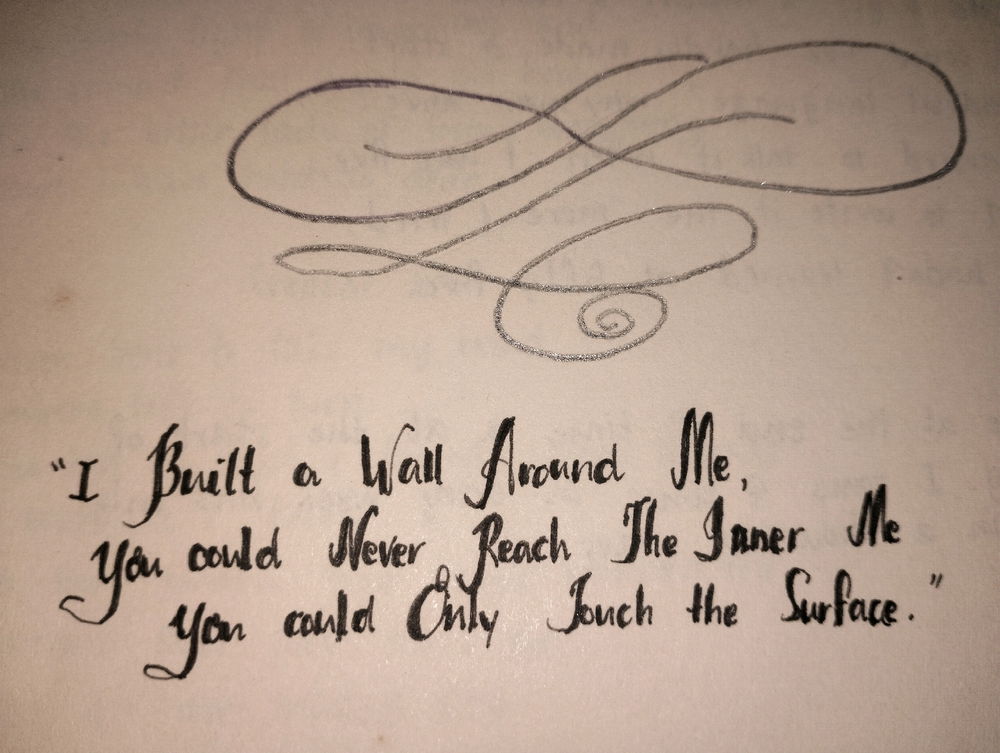 "I Built a Wall Around Me,
You could Never Reach The Inner Me
You could Only Touch the Surface."